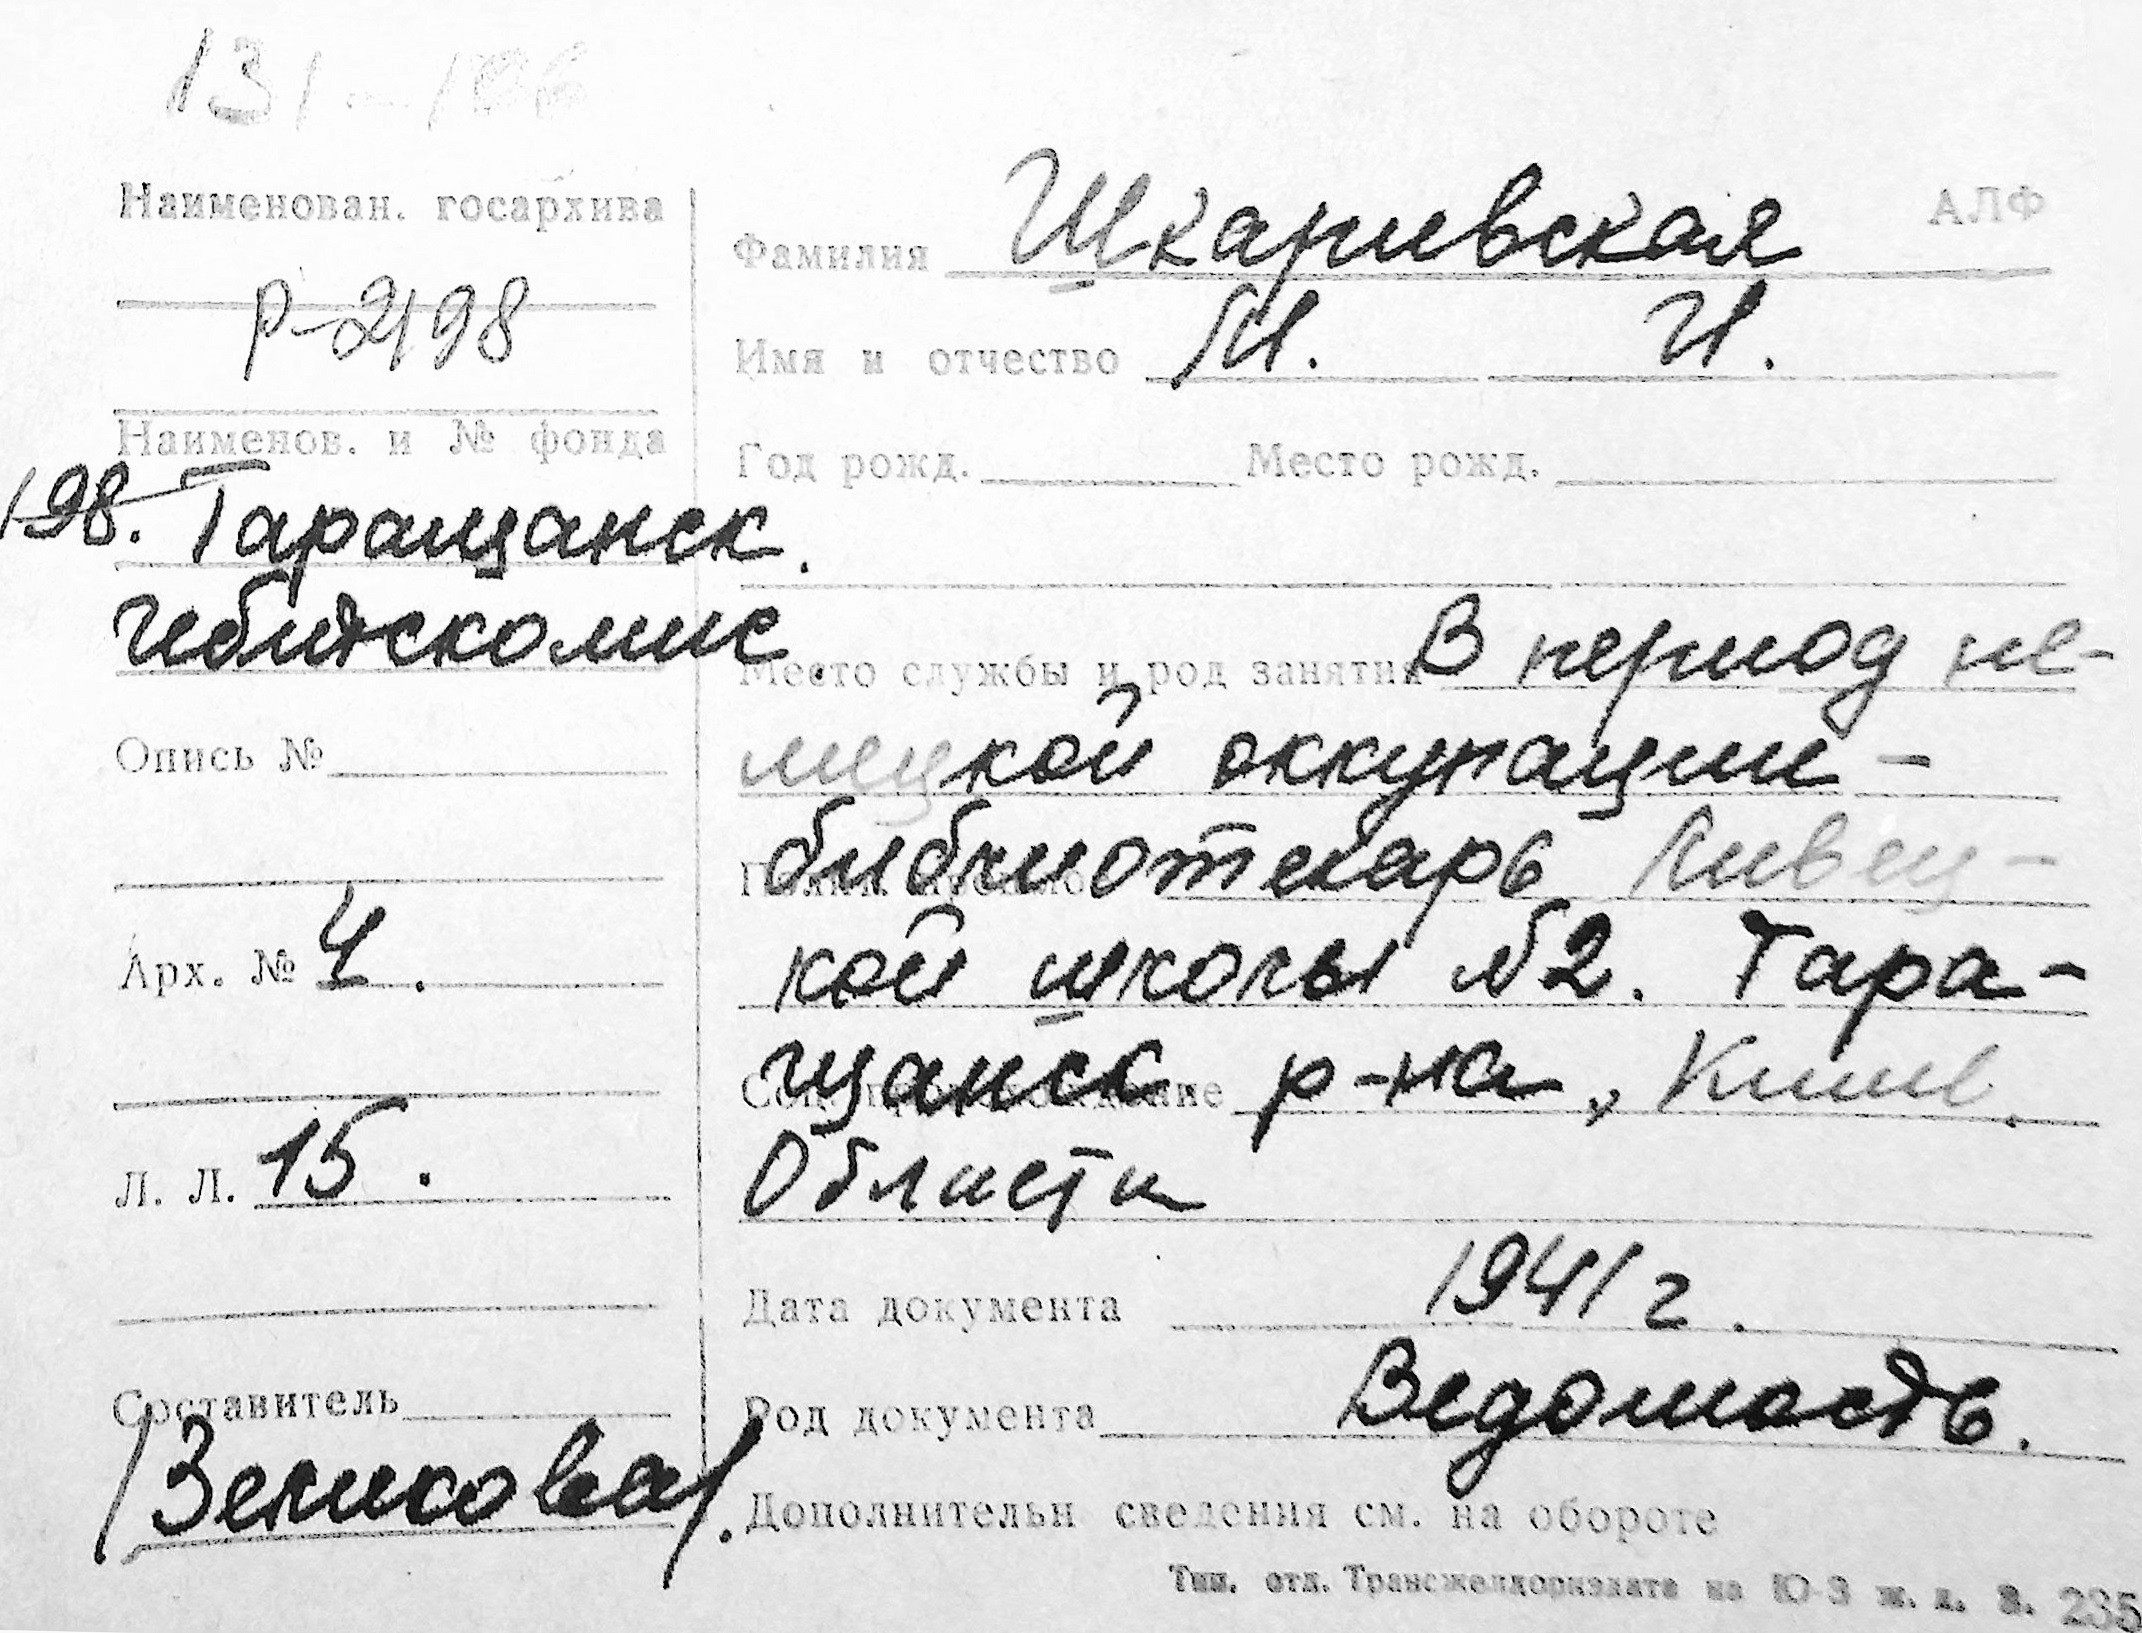 131-106
Наименован. госархива
Р-2198
Наименов. и № фонда
198. Таращанск.
гебитскомис.
Опись №
Арх. № 4.
Л. Л. 15.
Составитель
/Зеликова/.
АЛФ
Фамилия Шкаривская
Имя и отчество М. И.
Год рожд. Место рожд.
Место службы и род занятия В период не-
мецкой оккупации -
библиотекарь Кивец-
кой школы №2. Тара-
щанск р-на, Киев.
Области
Дата документа 1941 г.
Род документа Ведомость.
Дополнительн сведения см. на обороте
Тип. отд. Трансжелдориздата на Ю-З ж. д. З. 235